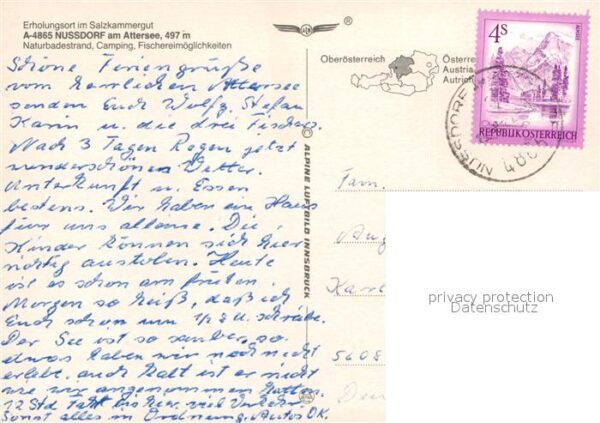 Erholungsort im Salzkammergut
A-4865 NUSSDORF am Attersee, 497 m
Naturbadestrand, Camping, Fischereimöglichkeiten
Schöne Feriengrüße
vom herrlichen Attersee
senden Euch Wolfg. Stefan
Karin u. die drei
Nach 3 Tagen Regen jetzt
wunderschönes Wetter.
Unterkunft u. Essen
bestens. Wir haben ein Haus
für uns alleine. Die
Kinder können sich hier
richtig austoben. Heute
ist es schon am frühen
Morgen so heiß, daß ich
Euch schon um 1/2 8 U. schreibe.
Der See ist so sauber, so
etwas haben wir noch nicht
erlebt, auch kalt ist er nicht
wie wir angenommen hatten.
12 Std Fahrt bis hier, viel Verkehr.
Sonst alles in Ordnung, Autos OK.
®
Oberösterreich
Österre
Austria
Autrich
ALPINE LUFTBILD INNSBRUCK
4S
ALMSEE
REPUBLIK ÖSTERREICH
NUSSDORF
Fam.
Aug
Karl
5608
privacy protection
Datenschutz